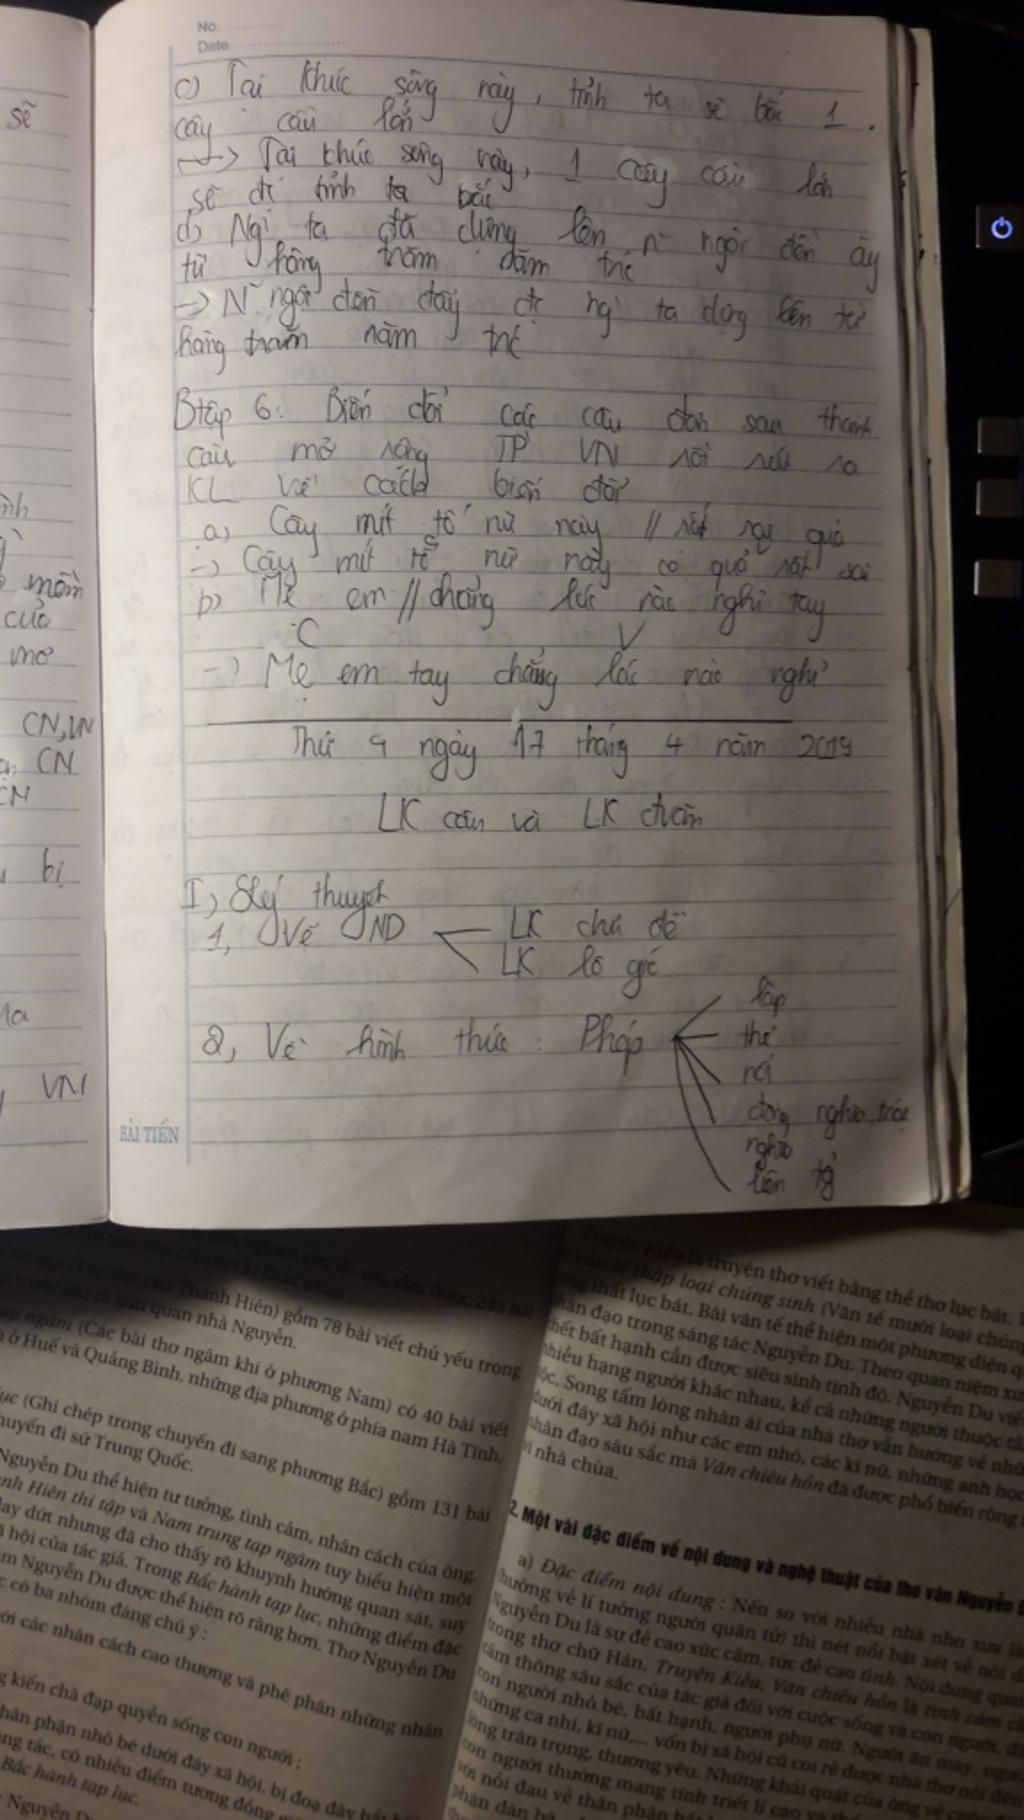 No.
Date
c) Tại khúc sông này, tỉnh ta sẽ bắc 1
cây cầu lớn
—> Tại khúc sông này, 1 cây cầu lớn
sẽ đc tỉnh ta bắc
d) Ng ta đã dựng lên n~ ngôi đền ấy
từ hàng trăm năm trc
-> N~ ngôi đền đấy đc ng ta dựng lên từ
hàng trăm năm trc
Btập 6: Biến đổi các câu đơn sau thành
câu mở rộng TP VN rồi rút ra
KL về cách biến đổi
a) Cây mít tố nữ này // rất sai quả
-> Cây mít tố nữ này có quả rất sai
b) Mẹ em // chẳng lúc nào nghỉ tay
C V
-> Mẹ em tay chẳng lúc nào nghỉ
Thứ 4 ngày 17 tháng 4 năm 2019
LK câu và LK đoạn
I) Lý thuyết
1, Về ND
LK chủ đề
LK lô gíc
2, Về hình thức: Phép
lặp
thế
nối
đồng nghĩa, trái
nghĩa
liên tg
HẢI TIẾN
sẽ
mồm
của
mơ
CN,VN
CN
CN
bị
VN
249 bài
(Tập thơ của Thanh Hiên) gồm 78 bài viết chủ yếu trong
trước khi ra làm quan nhà Nguyễn.
ngâm (Các bài thơ ngâm khi ở phương Nam) có 40 bài viết
ở Huế và Quảng Bình, những địa phương ở phía nam Hà Tĩnh.
lục (Ghi chép trong chuyến đi sang phương Bắc) gồm 131 bài
chuyến đi sứ Trung Quốc.
Nguyễn Du thể hiện tư tưởng, tình cảm, nhân cách của ông.
Thanh Hiên thi tập và Nam trung tạp ngâm tuy biểu hiện một
day dứt nhưng đã cho thấy rõ khuynh hướng quan sát, suy
xã hội của tác giả. Trong Bắc hành tạp lục, những điểm đặc
Nguyễn Du được thể hiện rõ ràng hơn. Thơ Nguyễn Du
có ba nhóm đáng chú ý :
với các nhân cách cao thượng và phê phán những nhân
kiến chà đạp quyền sống con người ;
thân phận nhỏ bé dưới đáy xã hội, bị đoạ đày
tác, có nhiều điểm tương đồng
Bắc hành tạp lục.
Nguyễn
Truyện Kiều là truyện thơ viết bằng thể thơ lục bát.
Văn tế thập loại chúng sinh (Văn tế mười loại chúng
song thất lục bát. Bài văn tế thể hiện một phương diện
nhân đạo trong sáng tác Nguyễn Du. Theo quan niệm
chết bất hạnh cần được siêu sinh tịnh độ. Nguyễn Du viết
nhiều hạng người khác nhau, kể cả những người thuộc
Song tấm lòng nhân ái của nhà thơ vẫn hướng về
dưới đáy xã hội như các em nhỏ, các kĩ nữ, những anh học
nhân đạo sâu sắc mà Văn chiêu hồn đã được phổ biến rộng
nhà chùa.
2. Một vài đặc điểm về nội dung và nghệ thuật của thơ văn Nguyễn
a) Đặc điểm nội dung : Nếu so với nhiều nhà nho xưa
(hướng về lí tưởng người quân tử) thì nét nổi bật xét về nội
Nguyễn Du là sự đề cao xúc cảm, tức đề cao tình. Nội dung
trong thơ chữ Hán, Truyện Kiều, Văn chiêu hồn là tình cảm
cảm thông sâu sắc của tác giả đối với cuộc sống và con người,
con người nhỏ bé, bất hạnh, người phụ nữ. Người ăn mày,
những ca nhi, kĩ nữ,... vốn bị xã hội cũ coi rẻ được nhà thơ nói đến
lòng trân trọng, thương yêu. Những khái quát của ông về
con người thường mang tính triết lí cao và
với nỗi đau về thân phận